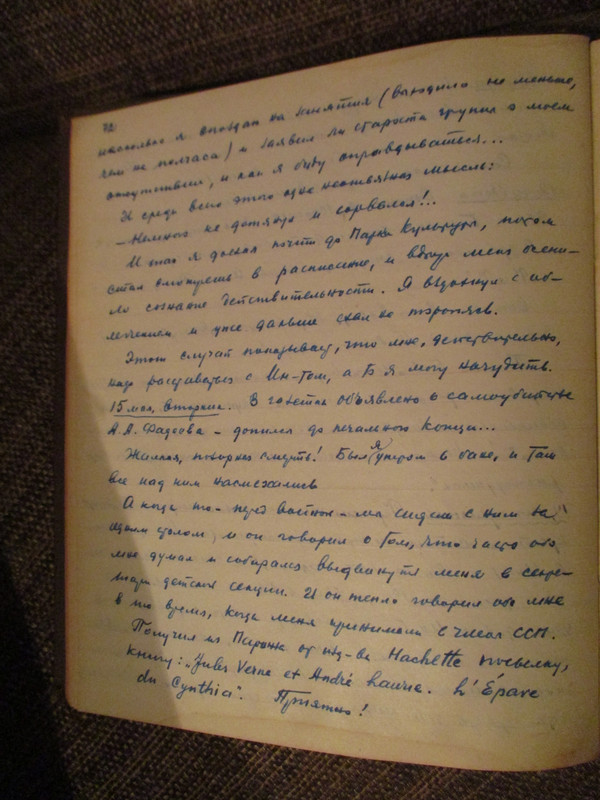 72
насколько я опоздал на занятия (выходило не меньше,
чем на полчаса) и заявил ли староста группы о моем
отсутствии, и как я буду оправдываться...
И среди всего этого одна неотвязная мысль:
– Немного не дотянул и сорвался!..
И так я доехал почти до Парка Культуры, потом
стал смотреть в расписание, и вдруг меня осени-
ло сознание действительности. Я вздохнул с об-
легчением и уже дальше ехал не торопясь.
Этот случай показывает, что мне, действительно,
надо расставаться с Ин-том, а то я могу начудить.
15 мая, вторник. В газетах объявлено о самоубийстве
А.А. Фадеева – допился до печального конца...
Жалкая, позорная смерть! Был я утром в бане, и там
все над ним насмехались
А когда-то – перед войной – мы сидели с ним за
одним столом, и он говорил о том, что часто обо
мне думал и собирался выдвинуть меня в секре-
тари детской секции. И он тепло говорил обо мне
в то время, когда меня принимали в члены ССП.
Получил из Парижа от изд-ва Hachette посылку,
книгу: "Jules Verne et André Laurie. L'Épave
du Cynthia". Приятно!